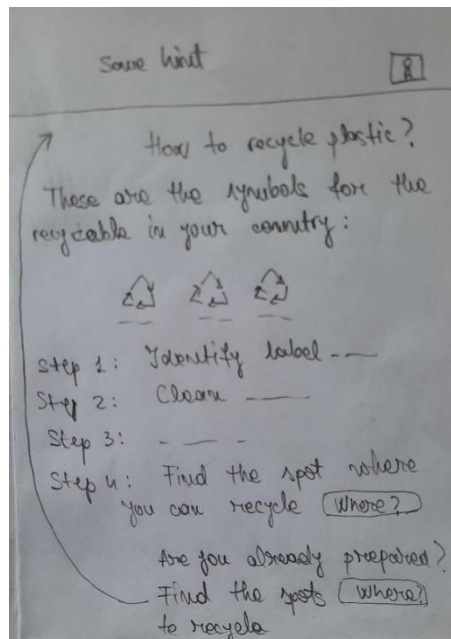 Save hint
How to recycle plastic?
These are the symbols for the
recyclable in your country:
Step 1: Identify label
Step 2: Clean
Step 3:
Step 4: Find the spot where
you can recycle Where?
Are you already prepared?
Find the spots Where?
to recycle